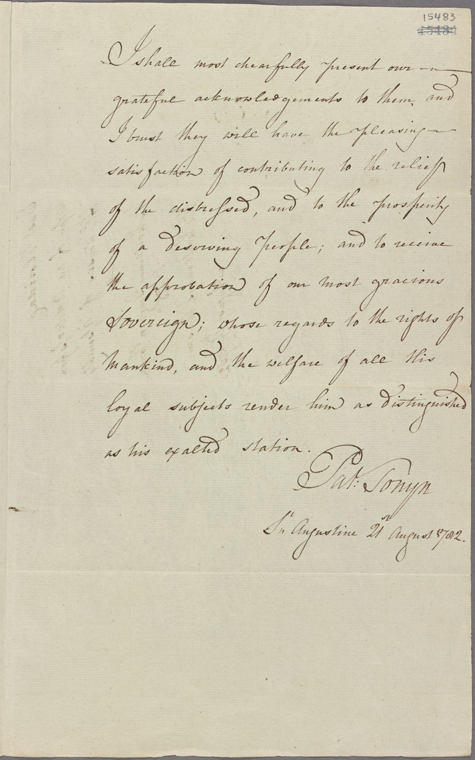 15483
I shall most chearfully present our
grateful acknowledgements to them, and
I trust they will have the pleasing
satisfaction of contributing to the relief
of the distressed, and to the prosperity
of a deserving People; and to receive
the approbation of our most gracious
Sovereign; whose regards to the rights of
Mankind, and the welfare of all His
loyal subjects render him as distinguished
as his exalted station.
Pat: Tonyn
St Augustine 21st August 1782.